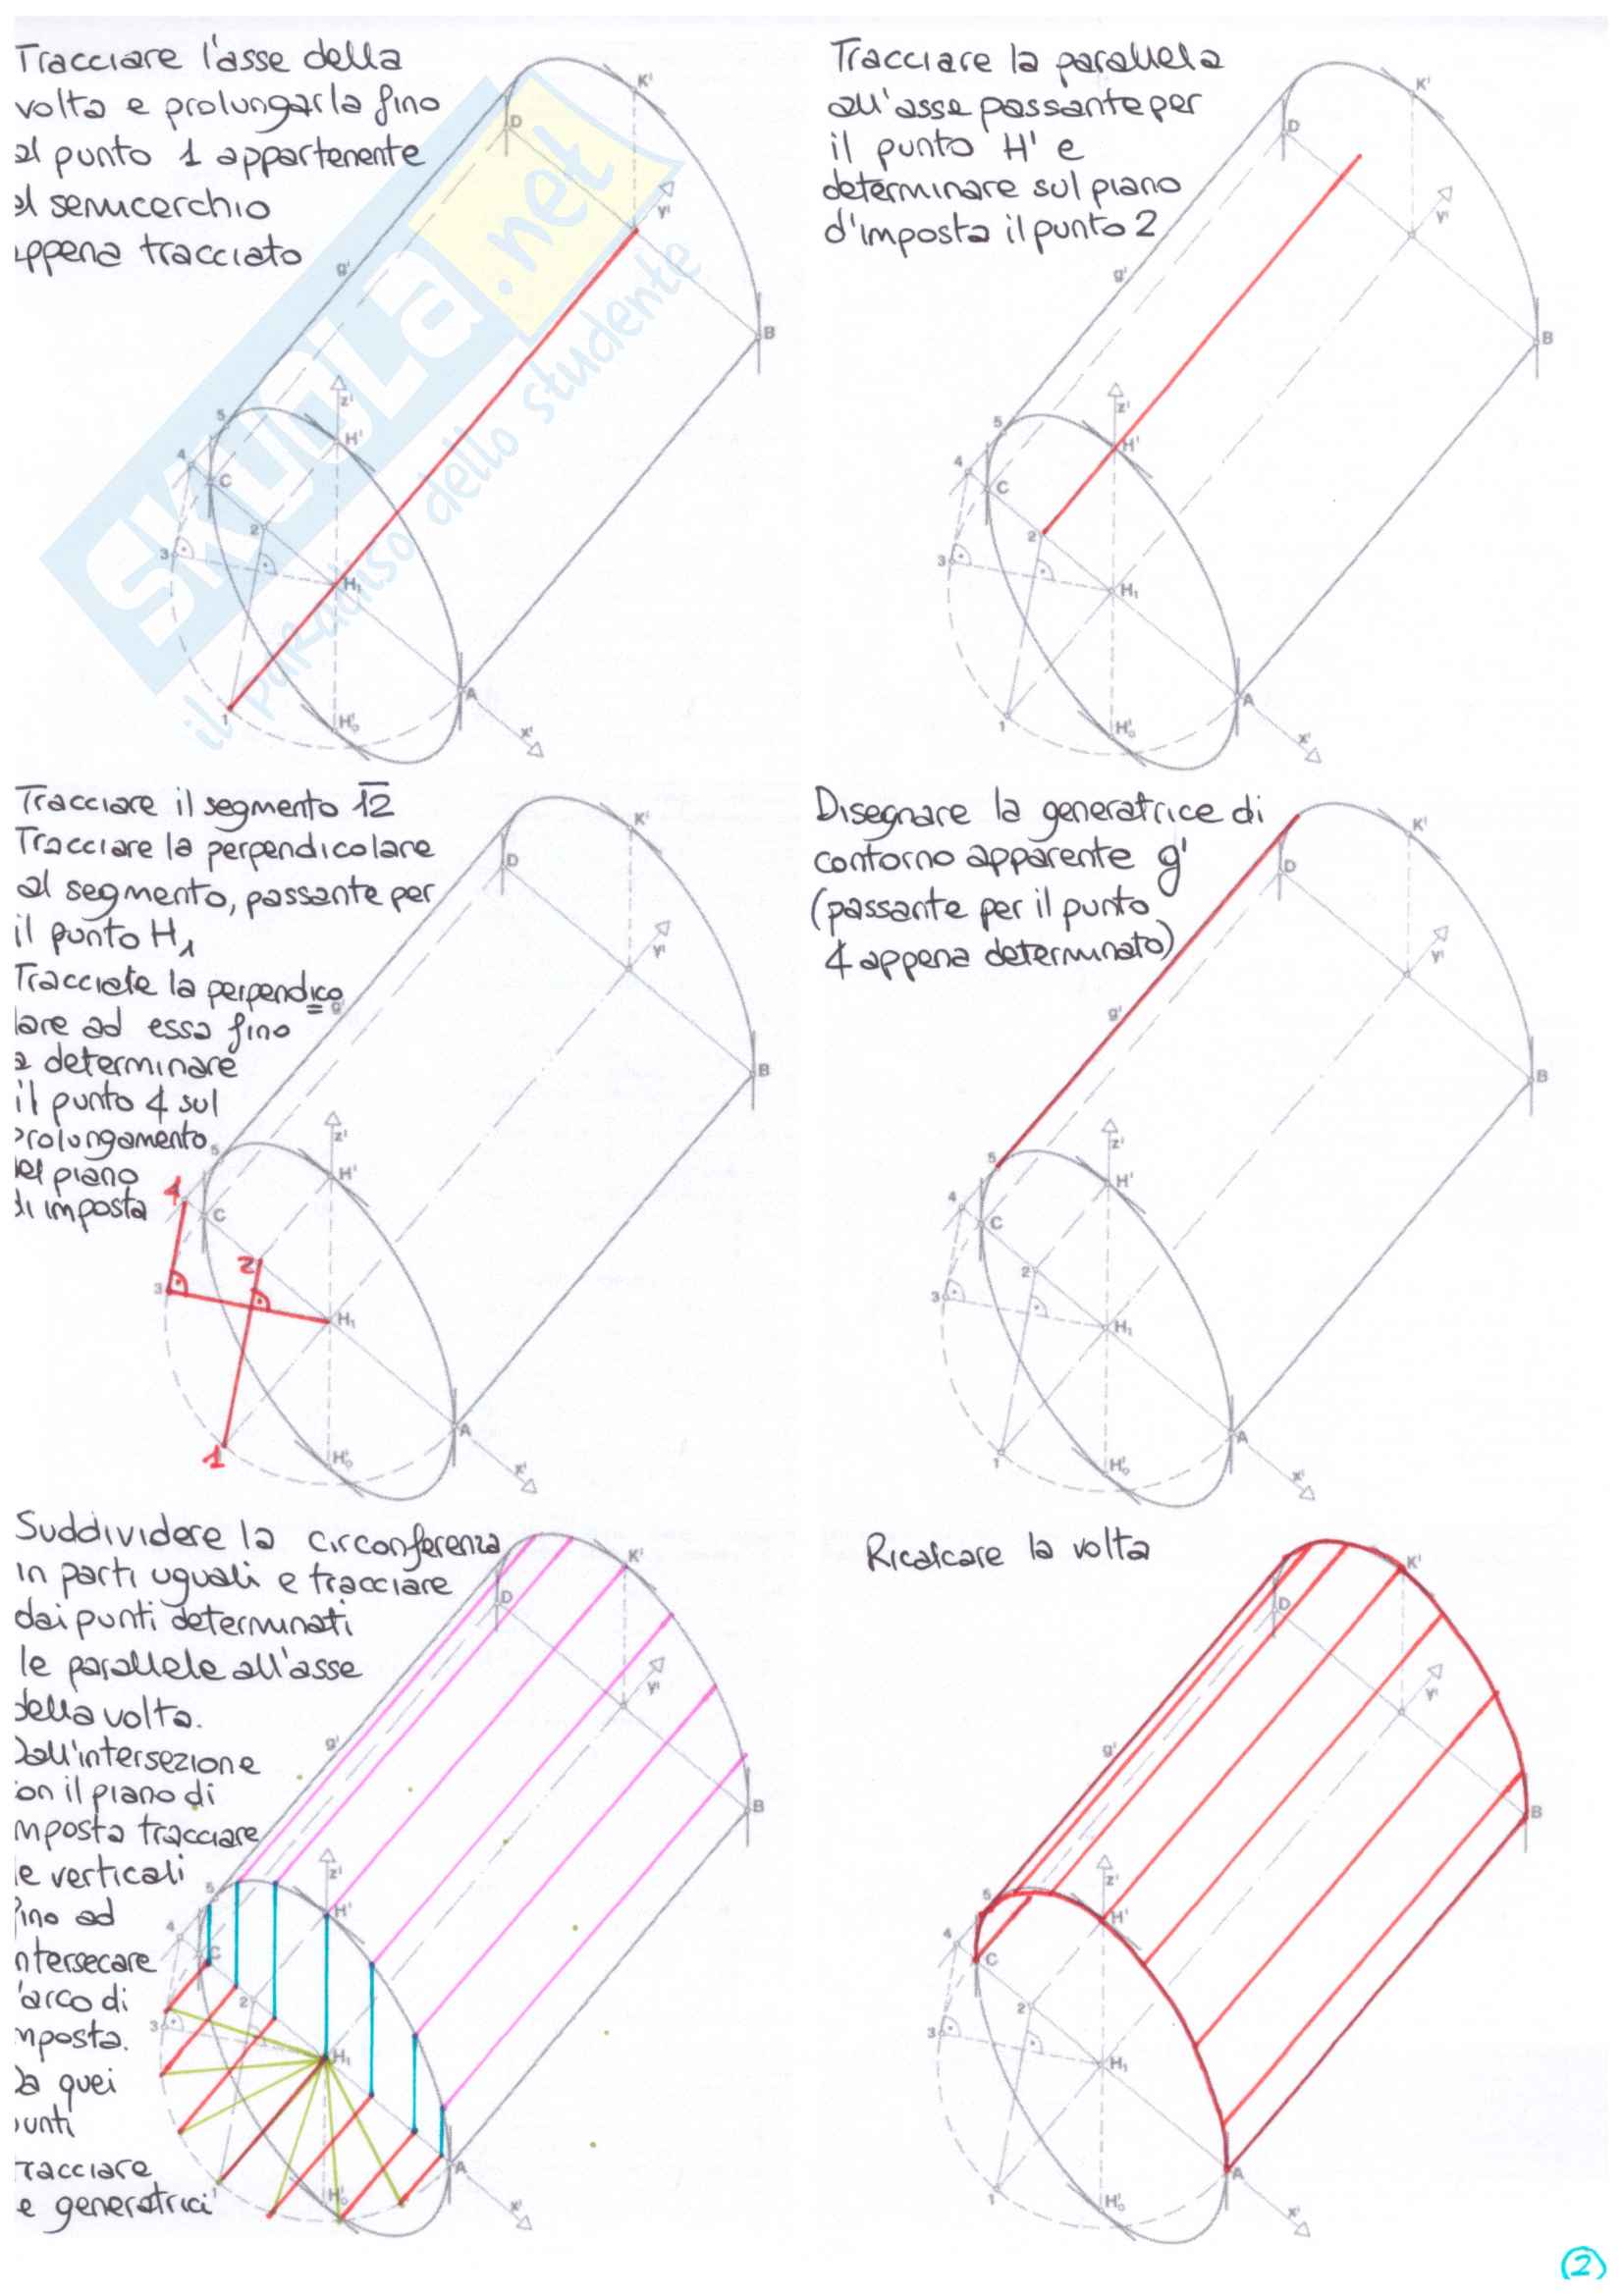 Tracciare l'asse della
volta e prolungarla fino
al punto 1 appartenente
al semicerchio
appena tracciato
D
K'
y'
g'
B
z'
5
H'
4
C
2
3
H₁
A
1
H'₀
x'
SKUOLA.net
il paradiso dello studente
Tracciare la parallela
all'asse passante per
il punto H' e
determinare sul piano
d'imposta il punto 2
D
K'
y'
g'
B
z'
5
H'
4
C
2
3
H₁
A
1
H'₀
x'
Tracciare il segmento 12
Tracciare la perpendicolare
al segmento, passante per
il punto H₁
Tracciate la perpendico=
lare ad essa fino
a determinare
il punto 4 sul
prolungamento
del piano
di imposta
D
K'
y'
g'
B
z'
5
H'
4
C
2
3
H₁
A
1
H'₀
x'
Disegnare la generatrice di
contorno apparente g'
(passante per il punto
4 appena determinato)
D
K'
y'
g'
B
z'
5
H'
4
C
2
3
H₁
A
1
H'₀
x'
Suddividere la circonferenza
in parti uguali e tracciare
dai punti determinati
le parallele all'asse
della volta.
Dall'intersezione
on il piano di
mposta tracciare
le verticali
fino ad
ntersecare
l'arco di
mposta.
Da quei
punti
tracciare
e generatrici
D
K'
y'
g'
B
z'
5
H'
4
C
2
3
H₁
A
1
H'₀
x'
Ricalcare la volta
D
K'
y'
g'
B
z'
5
H'
4
C
2
3
H₁
A
1
H'₀
x'
2